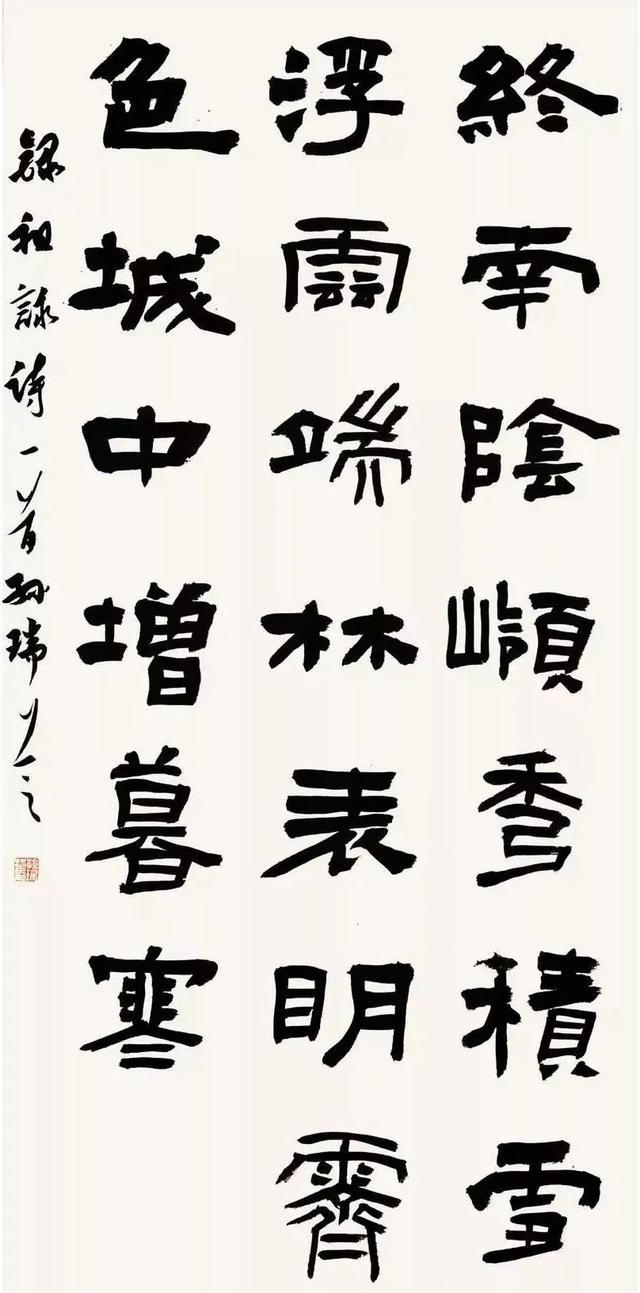 終南陰嶺秀積雪
浮雲端林表明霽
色城中增暮寒
錄祖詠詩一首孫瑞